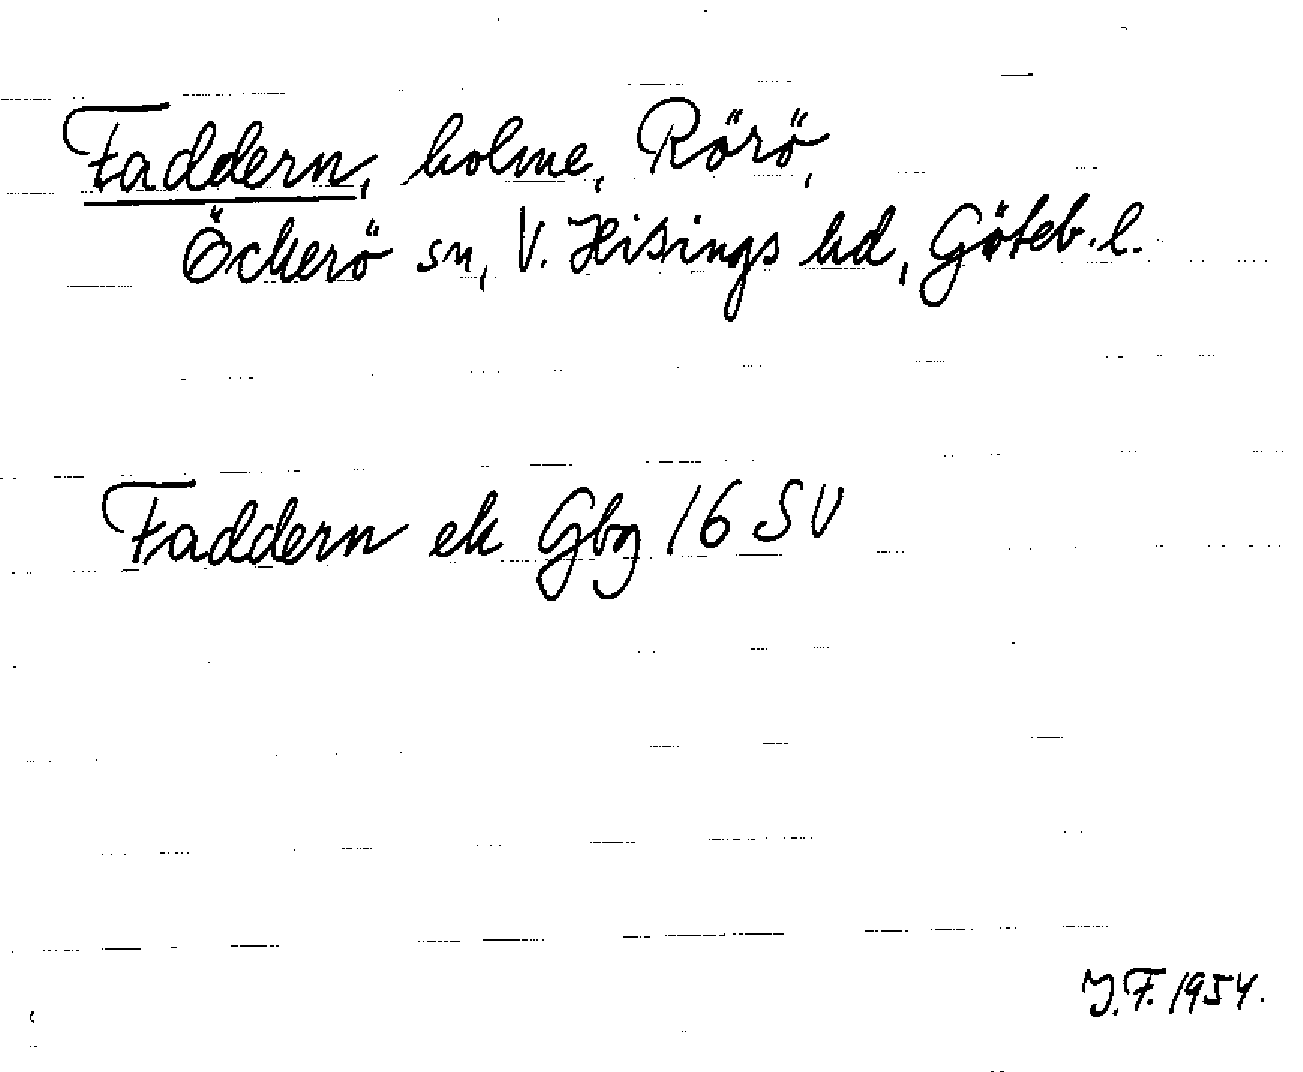 Faddern, holme, Rörö,
Öckerö sn, V. Hisings hd, Göteb. l.
Faddern ek Gbg 16 SV
J.F. 1954.